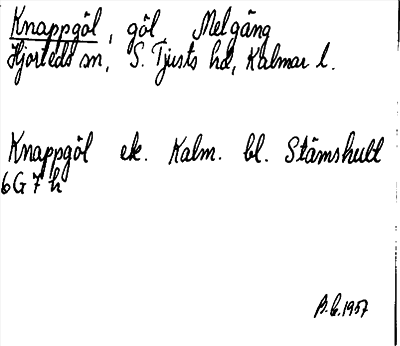 Knappgöl, göl Melgäng
Hjorteds sn, S. Tjusts hd, Kalmar l.
Knappgöl ek. Kalm. bl. Stämshult
6G7h
B.G.1957